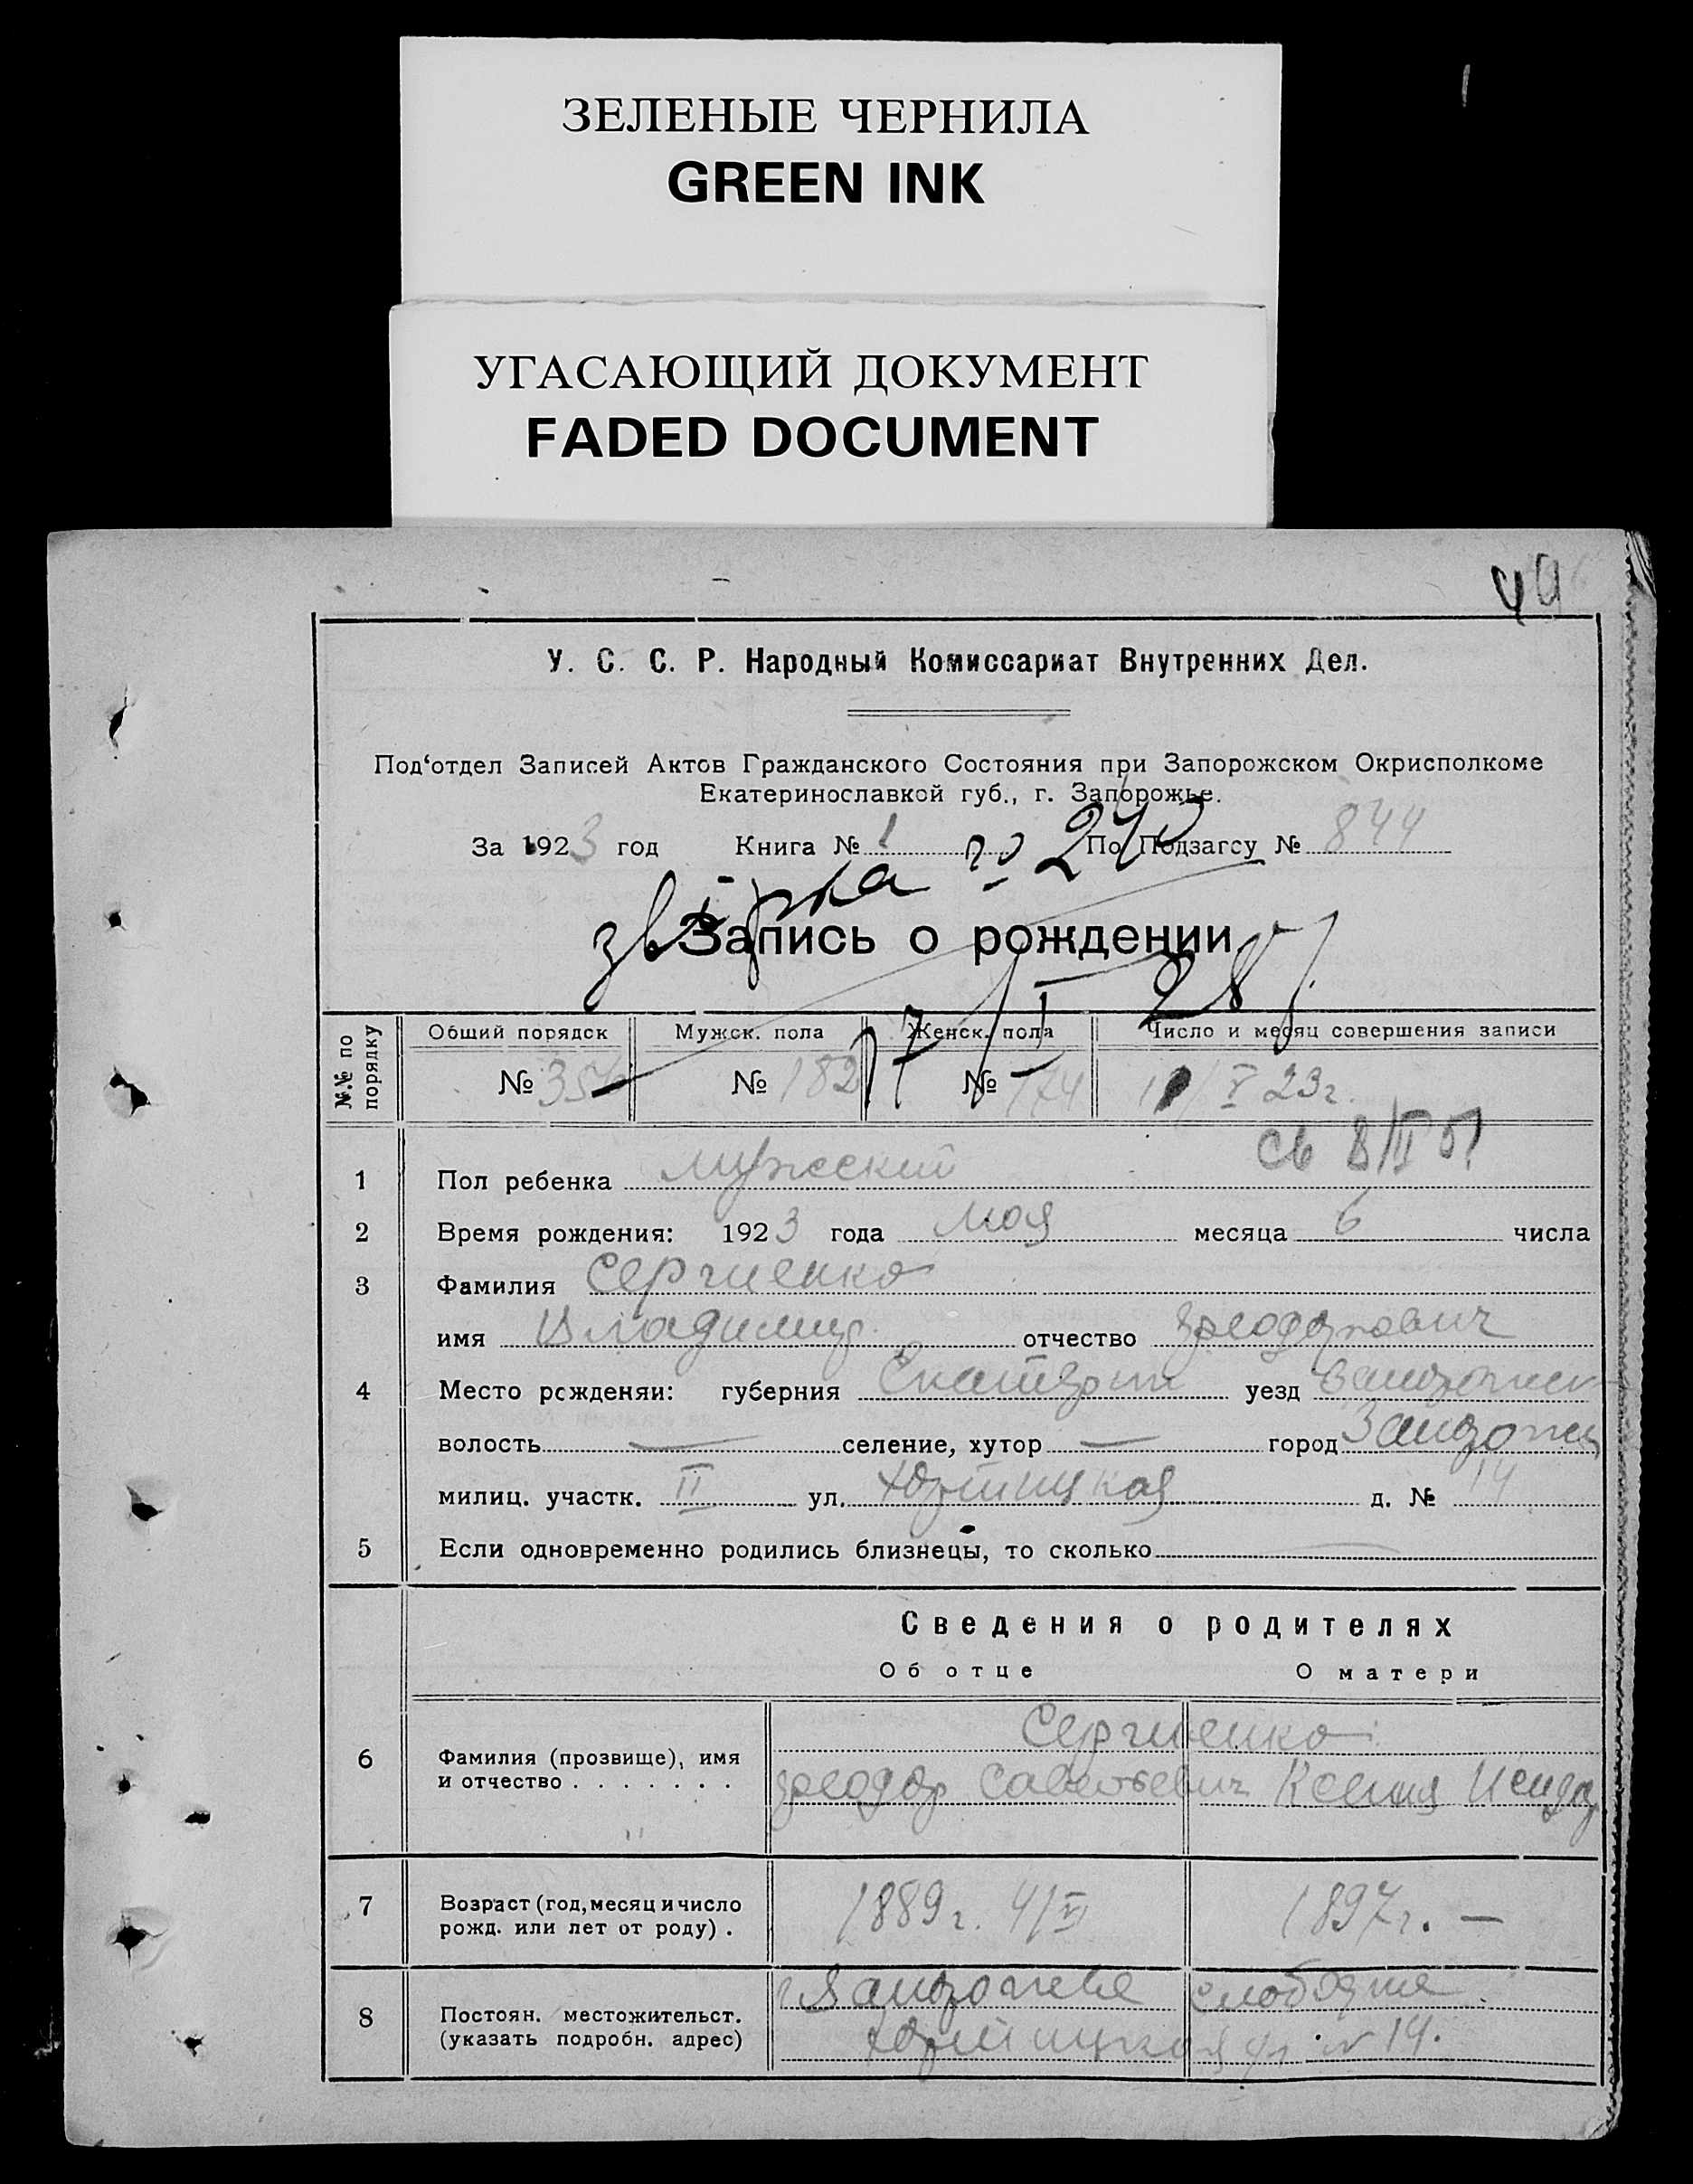 ЗЕЛЕНЫЕ ЧЕРНИЛА
GREEN INK
УГАСАЮЩИЙ ДОКУМЕНТ
FADED DOCUMENT
У. С. С. Р. Народный Комиссариат Внутренних Дел.
Под‘отдел Записей Актов Гражданского Состояния при Запорожском Окрисполкоме
Екатеринославкой губ., г. Запорожье.
За 1923 год Книга № 1 По Подзагсу № 844
звірка по 240
Запись о рождении
17/I 28
№№ по порядку Общий порядок Мужск. пола Женск. пола Число и месяц совершения записи
№ 356 № 182 № 174 /V 23г.
1 Пол ребенка мужской
2 Время рождения: 1923 года мая месяца 6 числа
3 Фамилия Сергиенко
имя Владимир отчество Феодорович
4 Место рожденяи: губерния Екатерин уезд Запорожск
волость — селение, хутор — город Запорожье
милиц. участк. II ул. Хортицкая д. № 14
5 Если одновременно родились близнецы, то сколько —
Сведения о родителях
Об отце О матери
Сергиенко
6 Фамилия (прозвище), имя
и отчество . . . . . . . Феодор Савельевич Ксения
7 Возраст (год, месяц и число
рожд. или лет от роду) . 1889 г. 4/VI 1897 г. —
8 Постоян. местожительст.
(указать подробн. адрес)
г Запорожье слободка
Хортицкая ул. № 14.